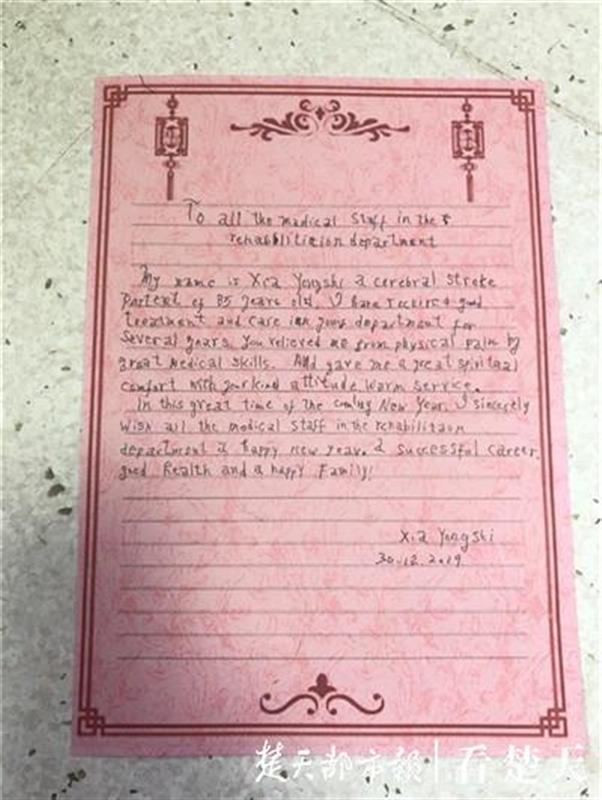 To all the madical staff in the
rehabblitition department
My name is Xia Yongshi a cerebral stroke
partert of 85 years old. I have reckived good
treatment and care in your department for
several years. You relieved me from physical pain by
great medical skills. And gave me a great spiritual
comfort with your kind attitude warm service.
In this great time of the coming New Year. I sincerely
wish all the medical staff in the rehabilitaion
department a happy new year. a successful career.
good Realth and a happy Family!
Xia Yongshi
30.12.2019
楚天都市報|看楚天